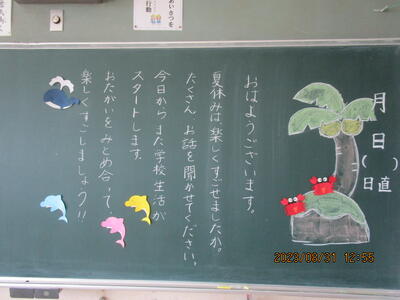 月
日
(
)
日直
おはようございます。
夏休みは楽しくすごせましたか。
たくさん、お話を聞かせてください。
今日からまた学校生活が
スタートします。
おたがいをみとめ合って、
楽しくすごしましょう!!
あいさつを
行動
2023/08/31 12:55